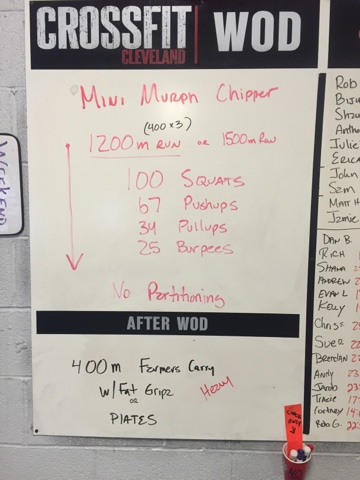 CROSSFIT
CLEVELAND
WOD
Mini Murph Chipper
(400x3)
1200m RUN or 1500m Row
100 Squats
67 Pushups
34 Pullups
25 Burpees
No Partitioning
AFTER WOD
400m Farmers Carry
W/Fat Gripz Heavy
or
PLATES
WEEKEND
Rob
Julie
Erica
John
Sam
Matt H
Jamie
Dan B
Rich
Shawn
Andrew
Evan L
Kelly
Chris
Sue
Brendan
Andy
Jacob
Tracie
Courtney
Rob G.